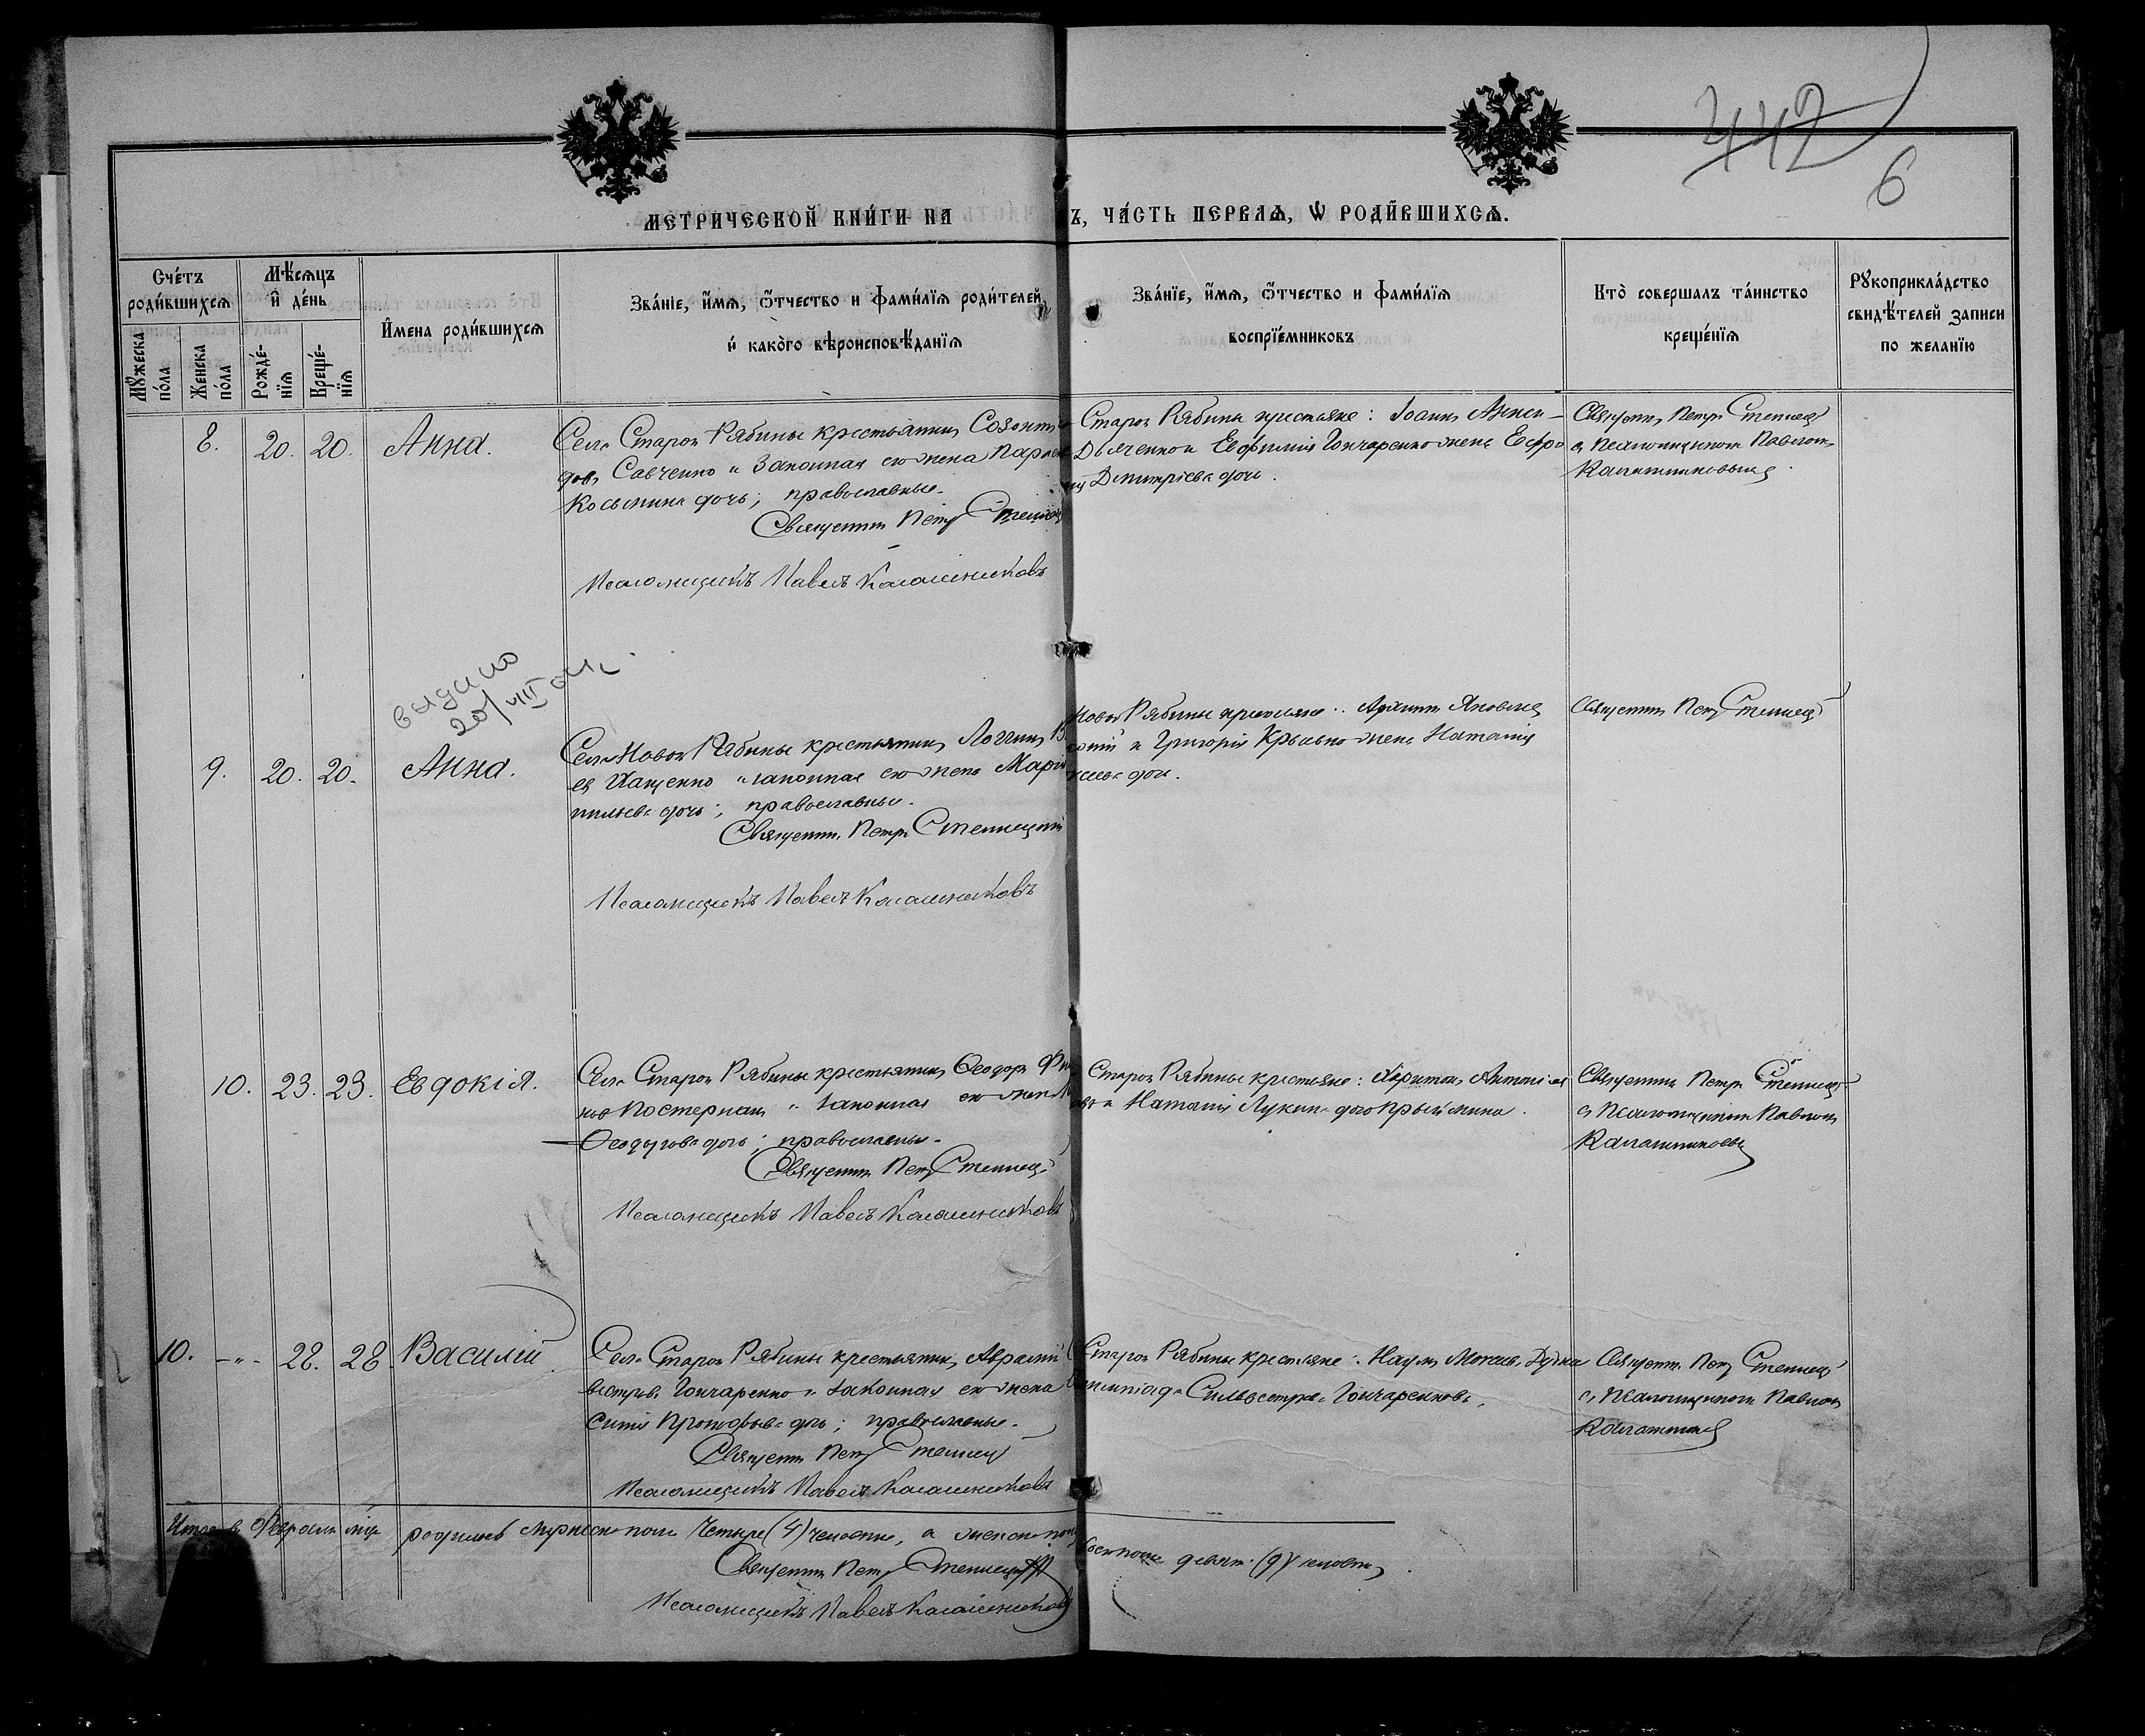 442
6
МЕТРИЧЕСКОЙ КНИ́ГИ НА Ъ, ЧА́СТЬ ПЕРВАѦ, Ѡ РОДИ́ВШИХСѦ.
Счéтъ роди́вшихсѧ
Мꙋ́жеска по́ла
Же́нска по́ла
Мѣ́сѧцъ и҆ де́нь
Рожде́нїѧ
Креще́нїѧ
И҆мена роди́вшихсѧ
Зва́нїе, и҆́мѧ, ѻ҆́тчество и фами́лїѧ роди́телей,
и҆ како́го вѣроисповѣ́данїѧ
Зва́нїе, и҆́мѧ, ѻ҆́тчество и фами́лїѧ
воспрїе́мниковъ
Кто̀ совершалъ та́инство
креще́нїѧ
Рꙋкоприкла́дство
свидѣ́телей записи
по желанїю
8. 20. 20. Анна.
Села Старой Рябины крестьянинъ Созонтъ
Савченко и законная его жена
Косьмина дочь; православные.
Священникъ Петръ
Псаломщикъ Павелъ Калашниковъ
Старой Рябины крестьяне: Іоаннъ
Дьяченко и Евфимія Гончаренко жена
Димитріева дочь.
Священникъ Петръ
съ псаломщикомъ Павломъ
Калашниковымъ.
выдано
20/VIII
9. 20. 20. Анна.
Села Новой Рябины крестьянинъ Логгинъ
Ищенко и законная его жена
дочь; православные.
Священникъ Петръ
Псаломщикъ Павелъ Калашниковъ
Новой Рябины крестьяне: Яковлевъ
и Григорія жена Наталія
дочь.
Священникъ Петръ
10. 23. 23. Евдокія.
Села Старой Рябины крестьянинъ Ѳеодоръ
и законная его жена
Ѳеодорова дочь; православные.
Священникъ Петръ
Псаломщикъ Павелъ Калашниковъ
Старой Рябины крестьяне: Харитонъ
и Наталія Лукина дочь
Священникъ Петръ
съ псаломщикомъ Павломъ
Калашниковымъ
10. -"- 28. 28. Василій
Села Старой Рябины крестьянинъ Авраамій
Гончаренко и законная его жена
Прокофьева дочь; православные.
Священникъ Петръ
Псаломщикъ Павелъ Калашниковъ
Старой Рябины крестьяне: Наумъ
Сильвестрова Гончаренкова.
Священникъ Петръ
съ псаломщикомъ Павломъ
Итого въ Февралѣ м-цѣ родилось мужеска пола четыре (4) человѣка, а женска пола
девять (9) человѣкъ
Священникъ Петръ
Псаломщикъ Павелъ Калашниковъ